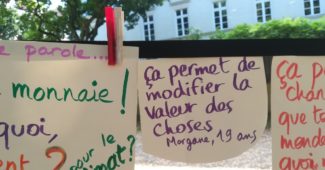 e parole...
monnaie !
quoi,
ent ?
pour le
imat ?
ça permet de
modifier la
valeur des
choses
Morgane, 19 ans
ça p
chan
que t
mende
quoi